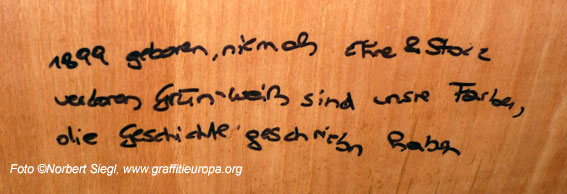 1899 geboren, niemals Ehre & Stolz
verloren Grün-weiß sind unsre Farben,
die Geschichte geschrieben haben
Foto ©Norbert Siegl, www.graffitieuropa.org